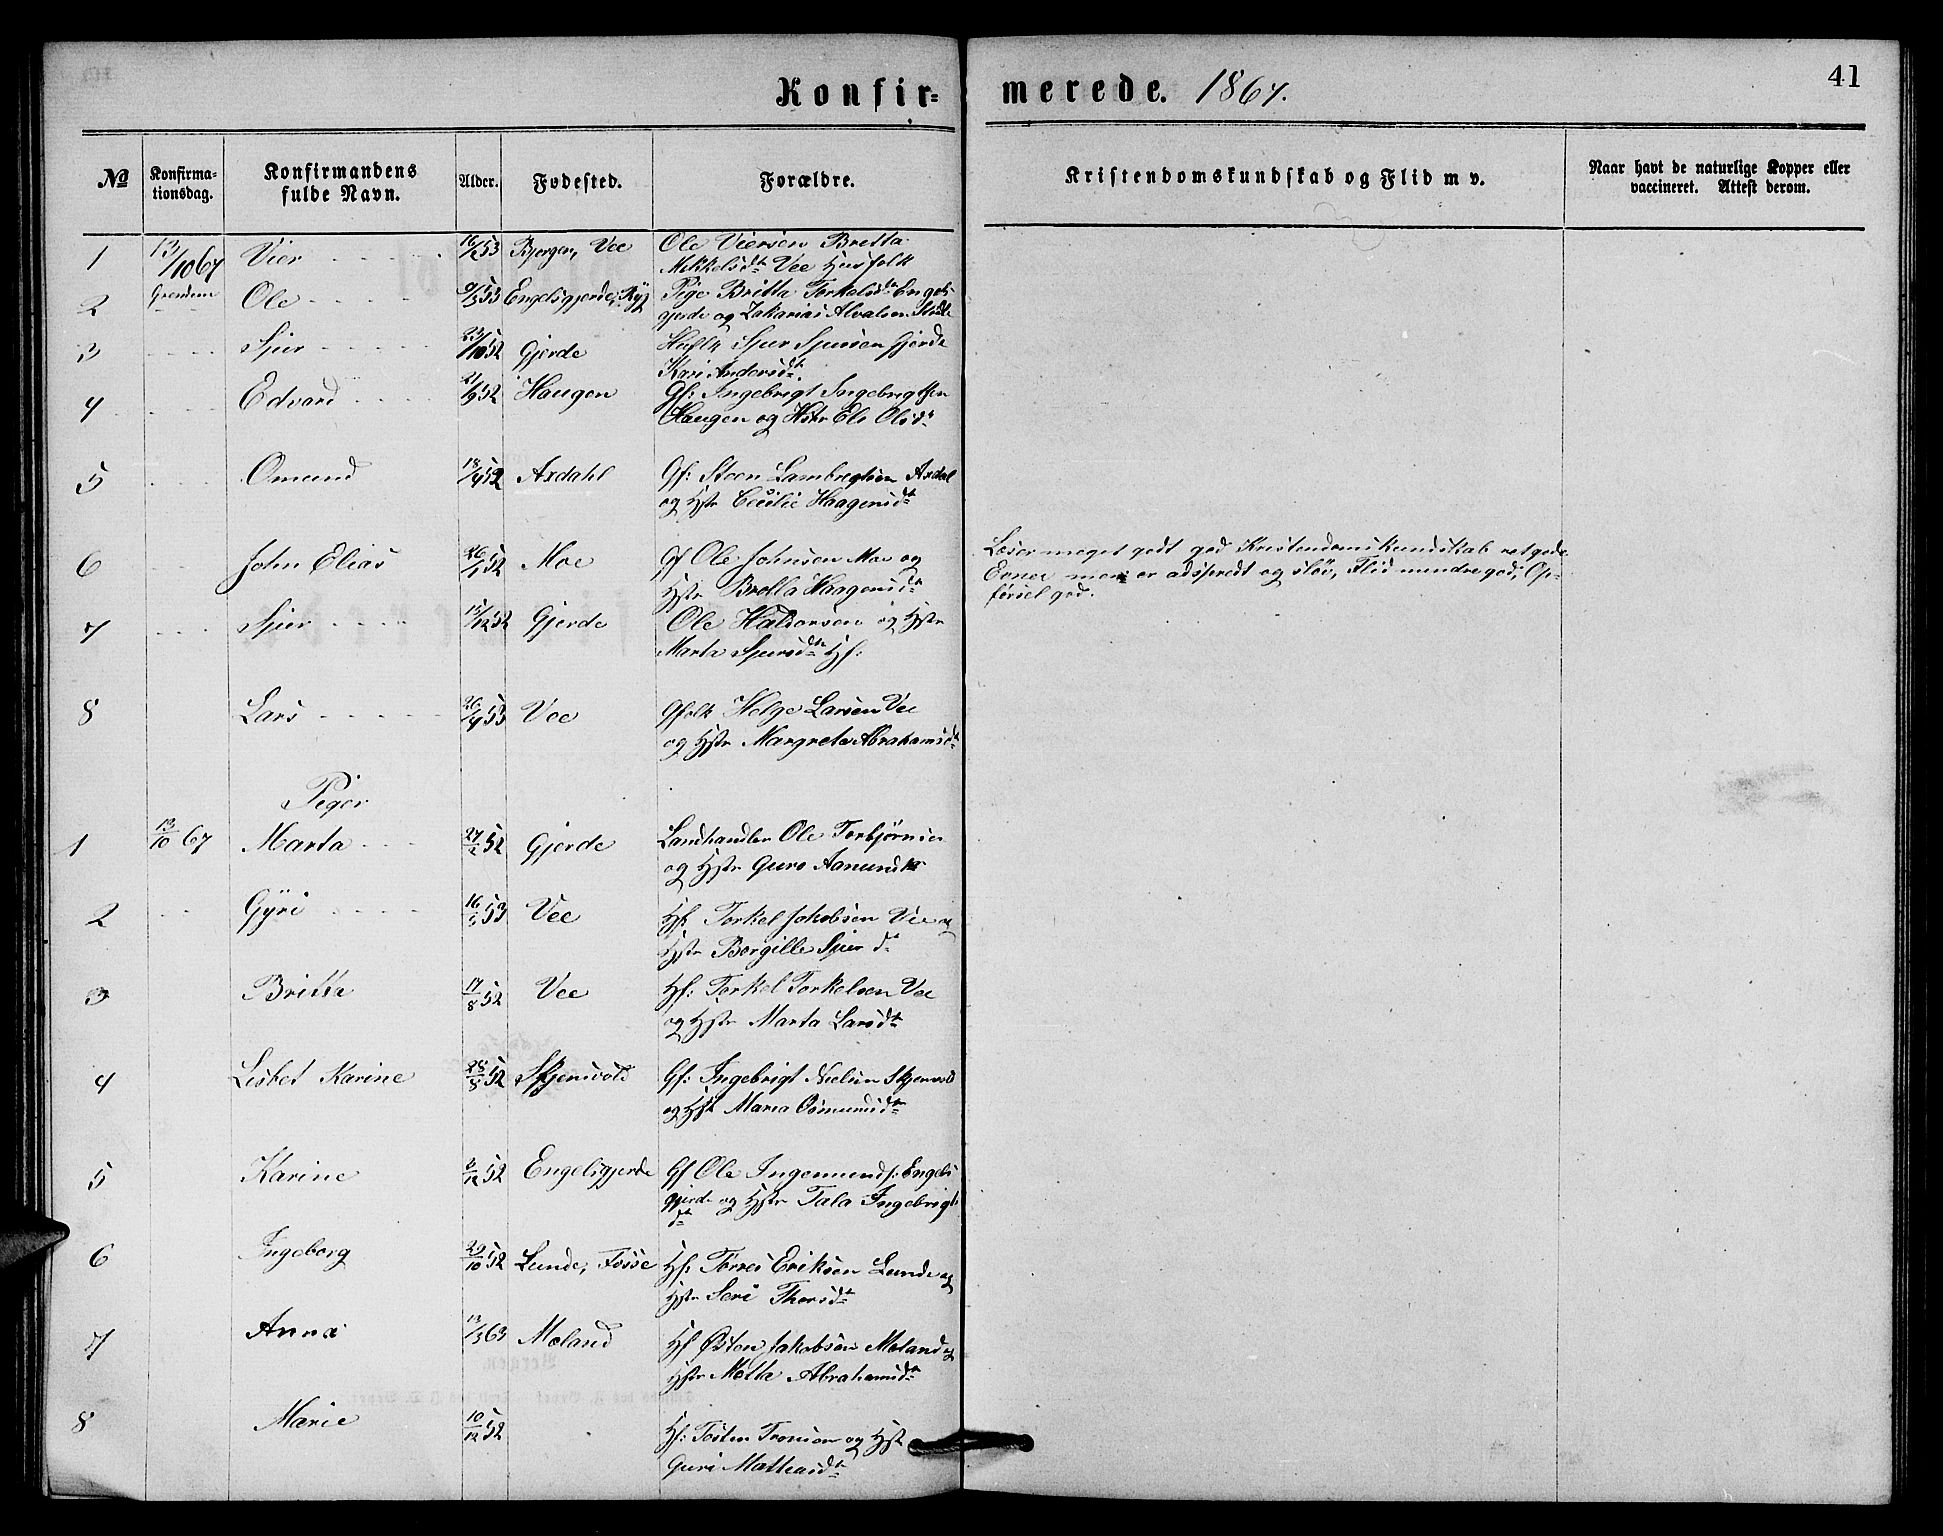 Konfir= merede. 1867. 41
No Konfirma- tionsdag. Konfirmandens fulde Navn. Alder. Fødested. Forældre. Kristendomskundskab og Flid m v. Naar havt de naturlige Kopper eller vaccineret. Attest derom.
1 13/10 67 Vier 16/2 53 Bjergen, Vee Ole Viersen Britta
Mikkelsdt. Vee Husfolk
2 Ole 53 Engelsgjerde, Pige Britta Torkelsdt. Engels
gjerde og Zakarias Alvalsen
3 Sjur 23/10 52 Gjerde Husflk Sjur Sjursen Gjerde
Kari Andersdt.
4 Edvard 21/9 52 Haugen Gf: Ingebrigt Ingebrigtsen
Haugen og Hstr Els Olsdt
5 Omund 18/4 52 Axdahl Gf: Steen Lambregtsen Axdal
og Hstr Cecilie Haagensdt
6 John Elias 26/1 52 Moe Gf Ole Johnsen Moe og
Hstr Brella Haagensdt
Læser meget godt god Kristendomskundskab ret gode
Evner men er adspredt og sløv, Flid mindre god, Op-
førsel god.
7 Sjur 15/12 52 Gjerde Ole Haldorsen og Hstr
Marta Sjursdt. Hf:
8 Lars 26/4 53 Vee Gfolk Helge Larsen Vee
og Hstr Margreta Abrahamsdt
Piger
1 13/10 67 Marta 27/2 52 Gjerde Landhandler Ole Torbjørnsen
og Hstr Guro Aamundsdt
2 Gÿri 16/5 53 Vee Hf: Torkel Jakobsen Vee og
Hstr Borgille Sjur dt
3 Britta 17/8 52 Vee Hf: Torkel Torkelsen Vee
og Hstr Marta Larsdt
4 Lisbet Karine 28/8 52 Skjensvold Gf: Ingebrigt Nielsen Skjensvold
og Hstr Maria Osmundsdt
5 Karine 3/12 52 Engelsgjerde Gf Ole Ingemundsf: Engels
gjerde og Hstr Tala Ingebrigts
dt
6 Ingeborg 29/10 52 Lunde, Fosse Hf: Torres Eriksen Lunde og
Hstr Seri Thorsdt
7 Anna 13/3 63 Moland Hf Østen Jakobsen Moland og
Hstr Motta Abrahamsdt
8 Marie 10/12 52 Hf: Tosten Tronsen og Hstr
Guri Matteasdt